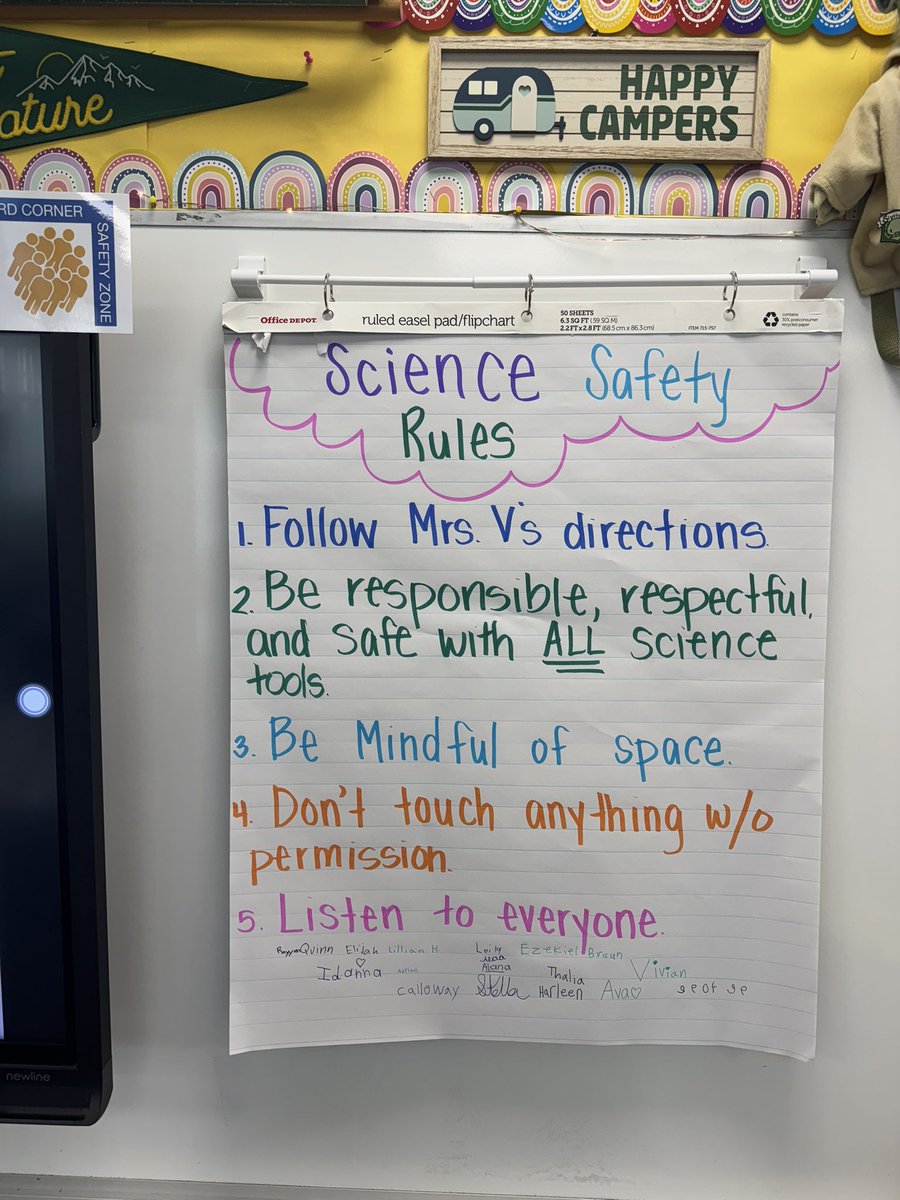 ature
HAPPY
CAMPERS
RD CORNER
SAFETY ZONE
Office DEPOT
ruled easel pad/flipchart
50 SHEETS
6.3 SQ FT (.59 SQ M)
2.2 FT x 2.8 FT (68.5 cm x 86.3 cm)
ITEM 715-757
contains
30% postconsumer
recycled paper
Science Safety
Rules
1. Follow Mrs. V's directions.
2. Be responsible, respectful,
and safe with ALL science
tools.
3. Be Mindful of space.
4. Don't touch anything w/o
permission.
5. Listen to everyone.
Quinn Elijah Lillian H. Ezekiel Braun
Idanna Alana Thalia Vivian
Calloway Stella Harleen Ava
newline